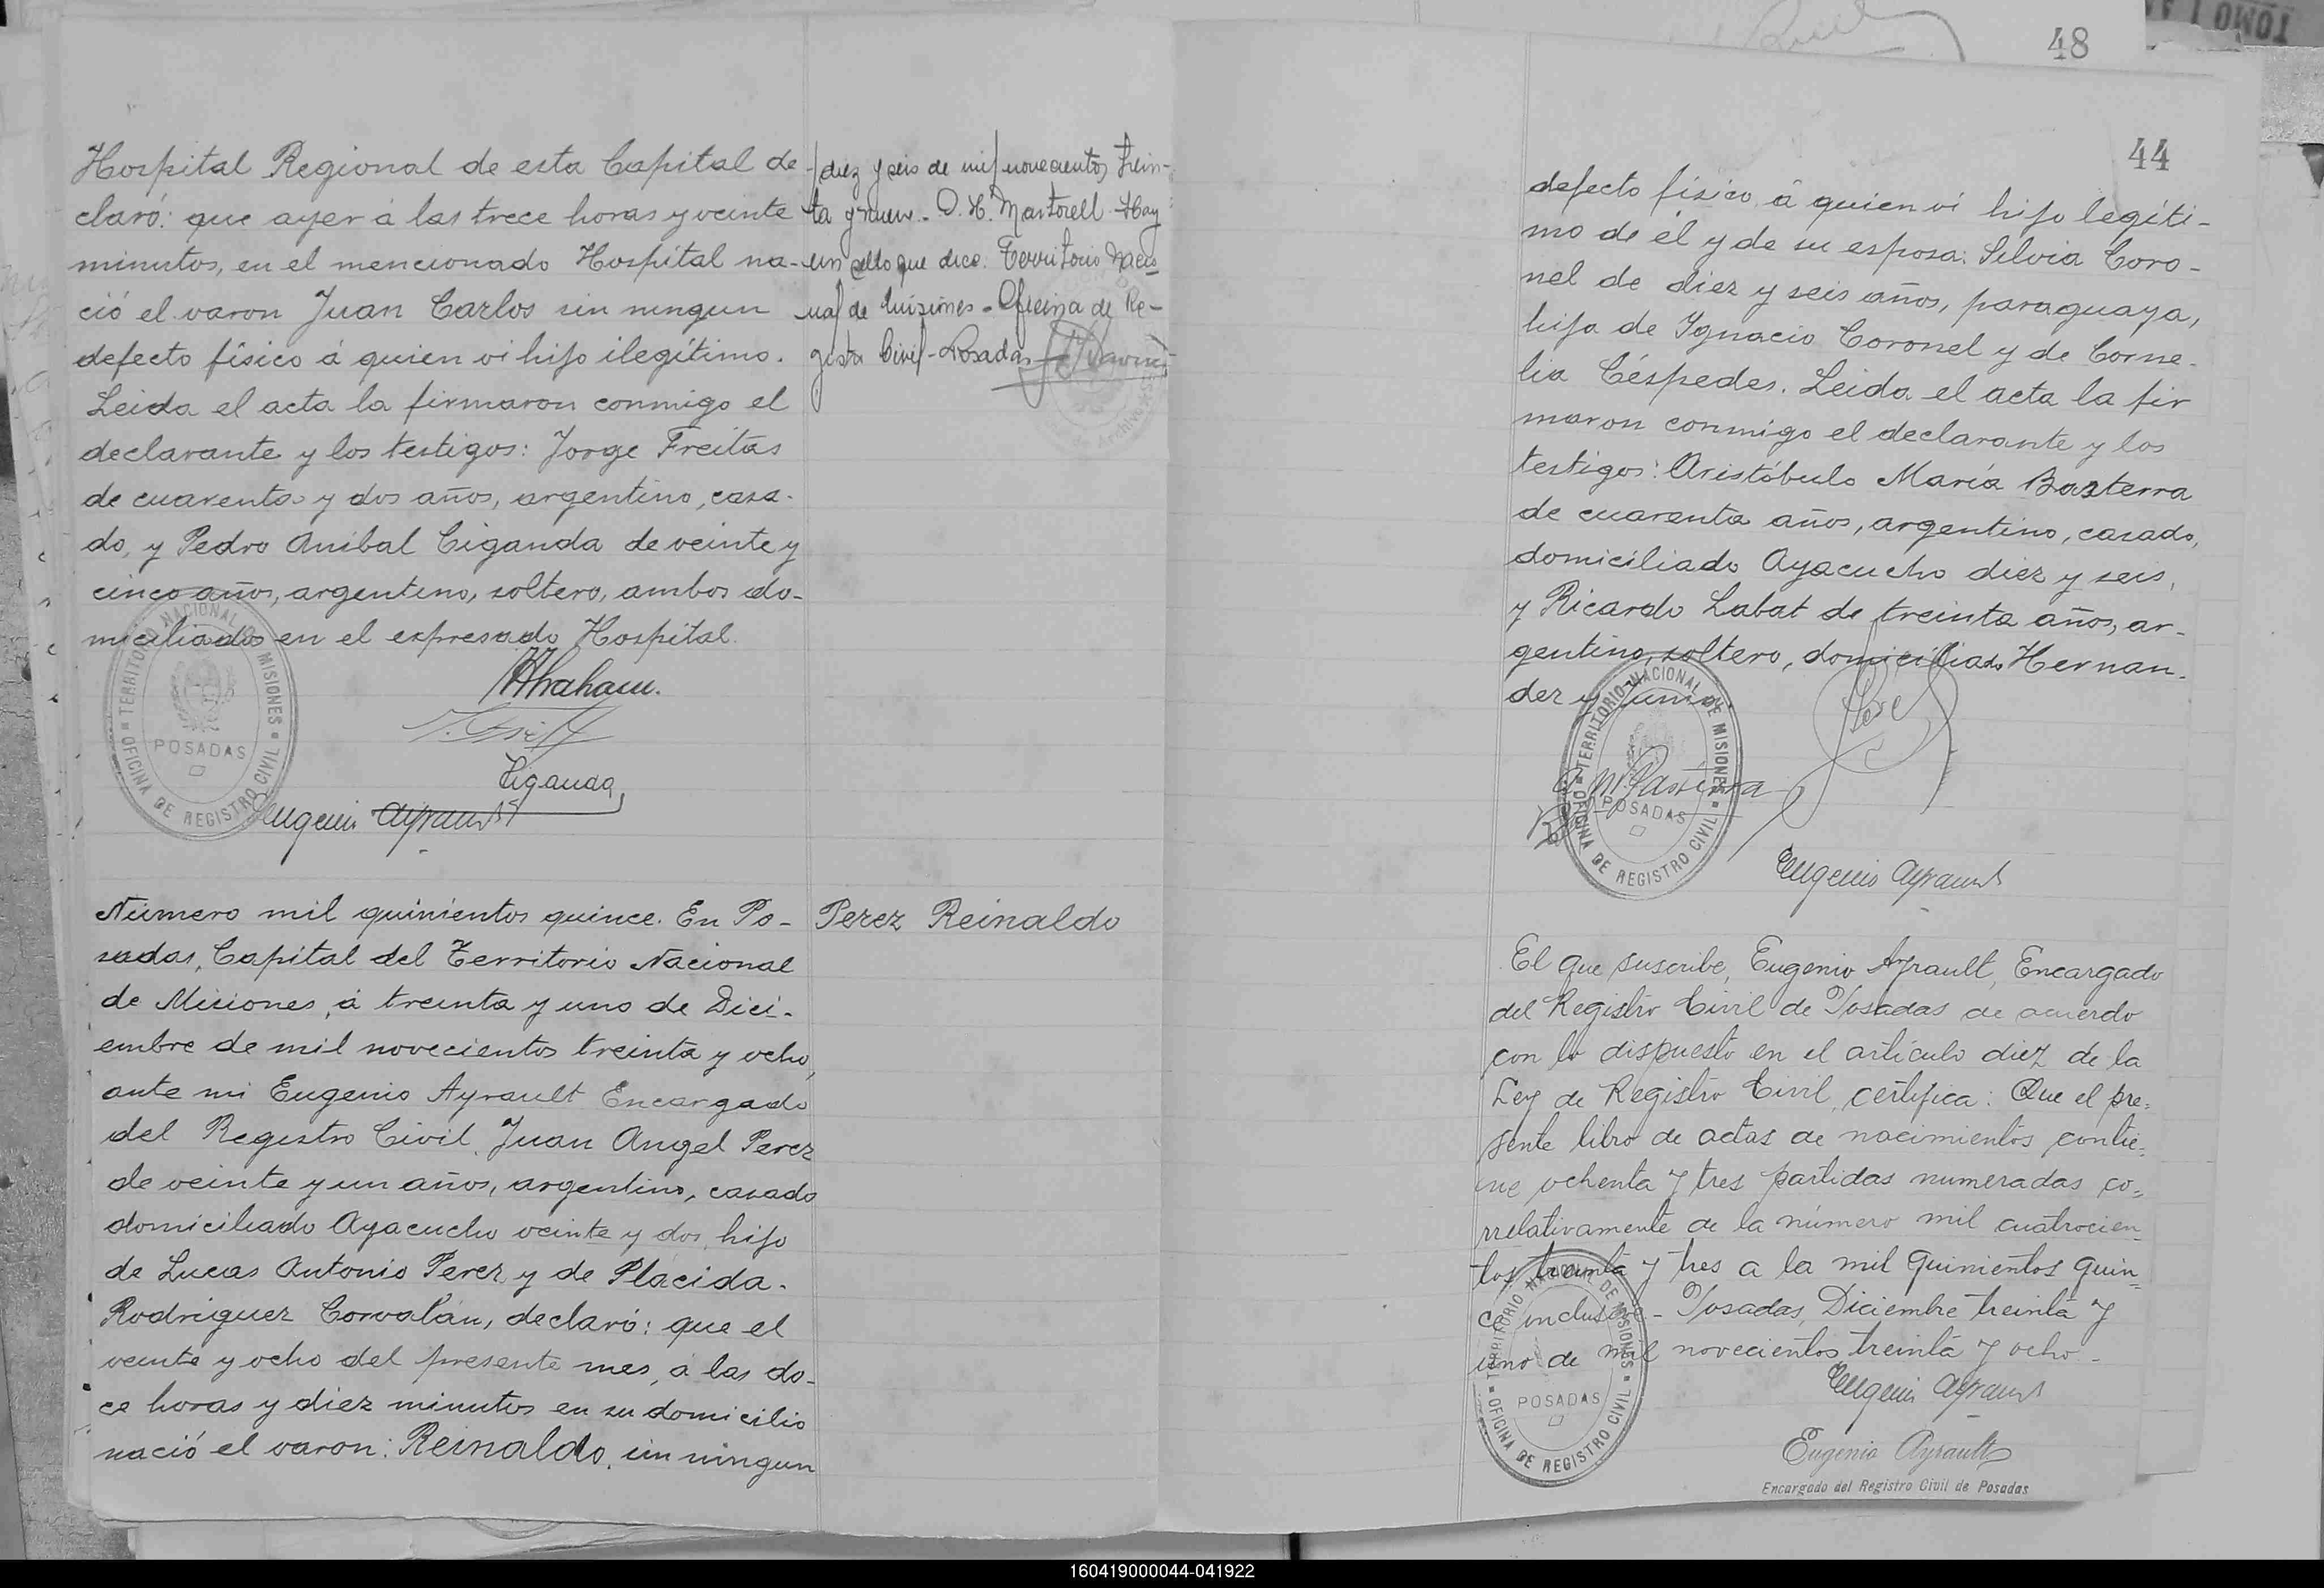 Hospital Regional de esta Capital de
claró: que ayer á las trece horas y veinte
minutos, en el mencionado Hospital na-
ció el varon Juan Carlos sin ningun
defecto físico á quien vi hijo ilegítimo.
Leida el acta la firmaron conmigo el
declarante y los testigos: Jorge Freitas
de cuarenta y dos años, argentino, casa-
do, y Pedro Anibal Ciganda de veinte y
cinco años, argentino, soltero, ambos do-
miciliados en el expresado Hospital.
Abraham.
Ciganda
Eugenio Ayrault
TERRITORIO NACIONAL DE MISIONES
POSADAS
OFICINA DE REGISTRO CIVIL
diez y seis de mil novecientos trein-
ta y nueve. D. H. Martorell Hay
un sello que dice. Territorio Nacio
nal de Misiones - Oficina de Re-
gistro Civil - Posadas
Número mil quinientos quince. En Po-
sadas, Capital del Territorio Nacional
de Misiones, á treinta y uno de Dici-
embre de mil novecientos treinta y ocho,
ante mi Eugenio Ayrault Encargado
del Registro Civil, Juan Angel Perez
de veinte y un años, argentino, casado
domiciliado Ayacucho veinte y dos, hijo
de Lucas Antonio Perez y de Plácida
Rodriguez Corvalán, declaró: que el
veinte y ocho del presente mes, á las do-
ce horas y diez minutos en su domicilio
nació el varon: Reinaldo, sin ningun
Perez Reinaldo
48
44
defecto físico, á quien vi hijo legíti-
mo de él y de su esposa: Silvia Coro-
nel de diez y seis años, paraguaya,
hija de Ignacio Coronel y de Corne-
lia Céspedes. Leida el acta la fir
maron conmigo el declarante y los
testigos: Aristóbulo María Basterra
de cuarenta años, argentino, casado,
domiciliado Ayacucho diez y seis,
y Ricardo Labat de treinta años, ar-
gentino, soltero, domiciliado Hernan-
dez y Junin.
TERRITORIO NACIONAL DE MISIONES
POSADAS
OFICINA DE REGISTRO CIVIL
Eugenio Ayrault
El que suscribe, Eugenio Ayrault, Encargado
del Registro Civil de Posadas de acuerdo
con lo dispuesto en el artículo diez de la
Ley de Registro Civil, certifica: Que el pre=
sente libro de actas de nacimientos contie=
ne ochenta y tres partidas numeradas co=
rrelativamente de la número mil cuatrocien
tos treinta y tres a la mil quinientos quin
ce inclusive - Posadas, Diciembre treinta y
uno de mil novecientos treinta y ocho -
Eugenio Ayrault
TERRITORIO NACIONAL DE MISIONES
POSADAS
OFICINA DE REGISTRO CIVIL
Eugenio Ayrault
Encargado del Registro Civil de Posadas
TOMO I
160419000044-041922